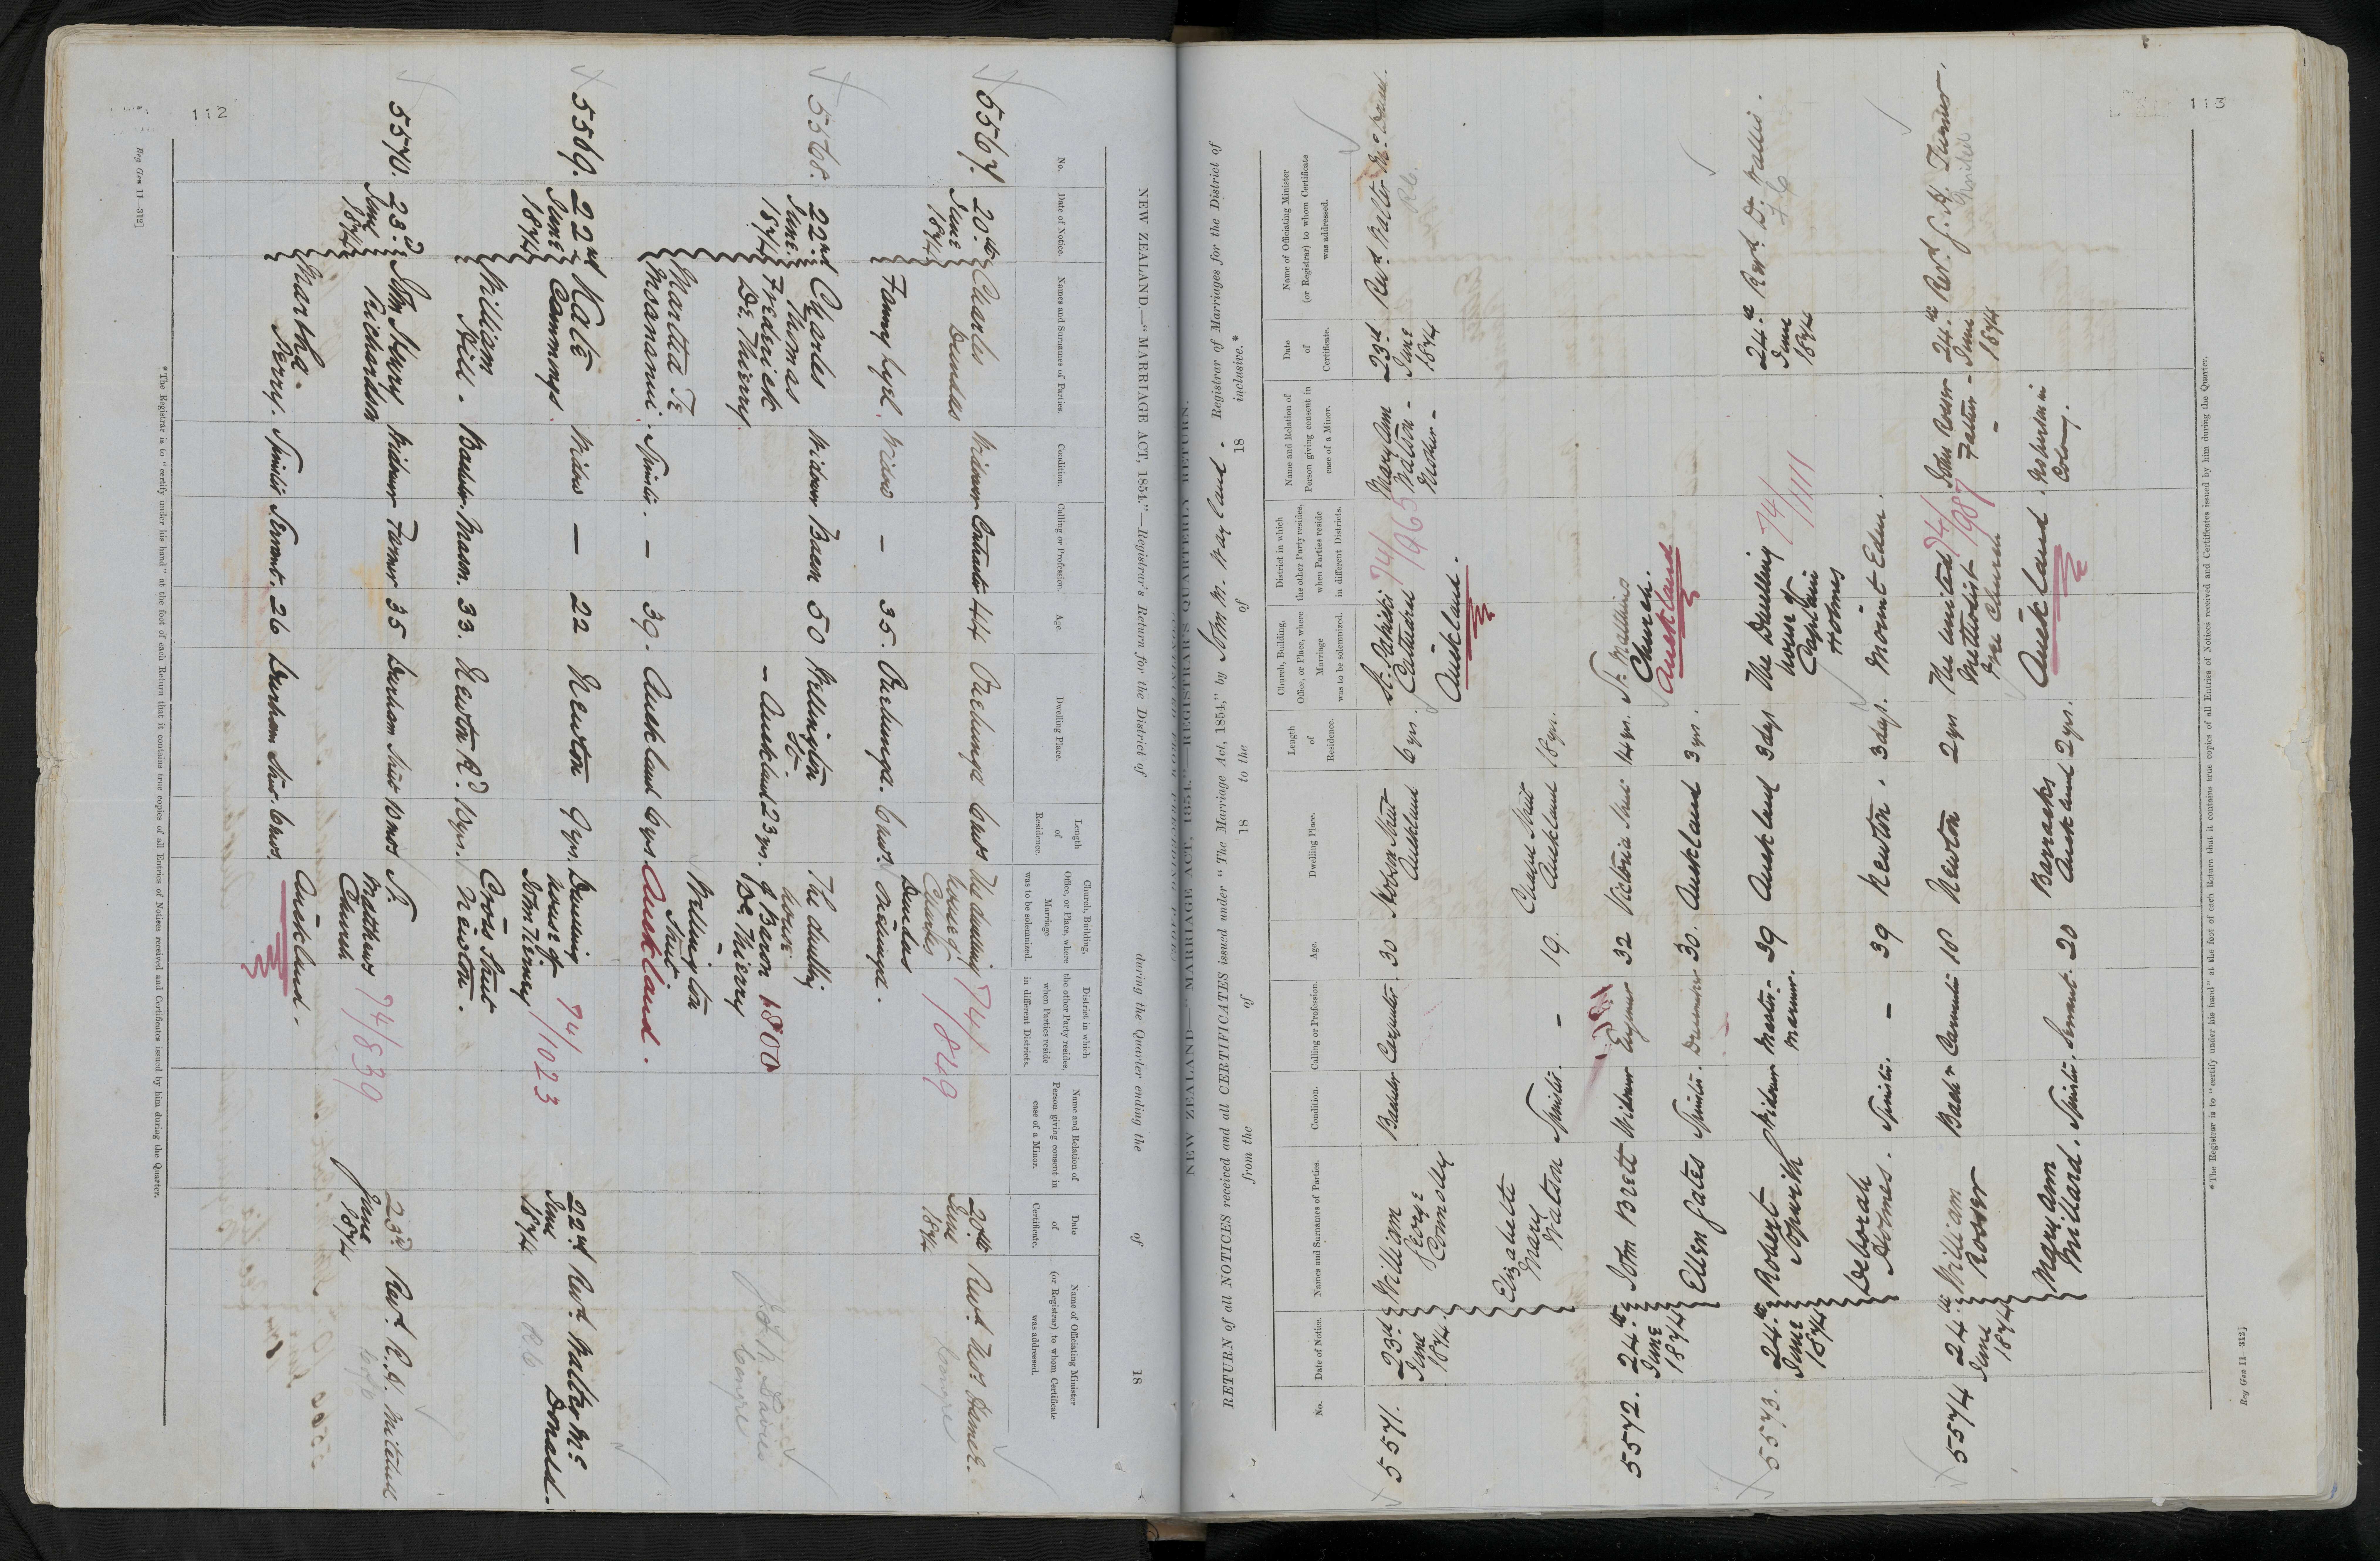 112
NEW ZEALAND.—"MARRIAGE ACT, 1854."—Registrar's Return for the District of during the Quarter ending the of 18
No.
Date of Notice.
Names and Surnames of Parties.
Condition.
Calling or Profession.
Age.
Dwelling Place.
Length of Residence.
Church, Building, Office, or Place, where Marriage was to be solemnized.
District in which the other Party resides, when Parties reside in different Districts.
Name and Relation of Person giving consent in case of a Minor.
Date of Certificate.
Name of Officiating Minister (or Registrar) to whom Certificate was addressed.
5567. 20th June 1874
Charles Dundas Widower 44 Onehunga
The dwelling house of Charles Dundas Onehunga.
74/1849
20th June 1874 Revd.
Fanny Lyel. Widow — 35. Onehunga.
5568. 22nd June 1874
Charles Thomas Frederick De Thierry Widower Baron 50 Wellington St. — Auckland 23 yrs.
The dwelling house of Baron De Thierry Wellington Street Auckland.
1800
Martha Te Moananui. Spinster. — 39. Auckland 6 yrs
5569. 22nd June 1874
Kate Cammings. Widow — 22 Newton 9 yrs.
Dwelling house of John Tenney Cross Street Newton.
74/1023
22nd June 1874 Revd. Walter Mc Donald.
William Hill. Bachelor Mason. 33. Newton Rd. 10 yrs.
5570. 23rd June 1874
John Henry Richardson Widower Farmer 35 Durham Street 10 mos
St. Matthews Church Auckland.
74/839
23rd June 1874 Revd.
Martha Perry. Spinster Servant. 26 Durham Street. 6 mos.
* The Registrar is to "certify under his hand" at the foot of each Return that it contains true copies of all Entries of Notices received and Certificates issued by him during the Quarter.
Reg Gen 11—312]
113
NEW ZEALAND.—"MARRIAGE ACT, 1854."—REGISTRAR'S QUARTERLY RETURN.
RETURN of all NOTICES received and all CERTIFICATES issued under "The Marriage Act, 1854," by John M. Wayland. Registrar of Marriages for the District of
from the of 18 to the of 18 inclusive.*
No.
Date of Notice.
Names and Surnames of Parties.
Condition.
Calling or Profession.
Age.
Dwelling Place.
Length of Residence.
Church, Building, Office, or Place, where Marriage was to be solemnized.
District in which the other Party resides, when Parties reside in different Districts.
Name and Relation of Person giving consent in case of a Minor.
Date of Certificate.
Name of Officiating Minister (or Registrar) to whom Certificate was addressed.
5571. 23rd June 1874
William George Connolly Bachelor Carpenter. 30 Hobson Street Auckland 6 yrs.
St. Patricks Cathedral Auckland.
74/965
Mary Ann Watson - Mother -
23rd June 1874 Revd. Walter
Elizabeth Mary Watson Spinster. — 19. Auckland 18 yrs.
5572. 24th June 1874
John Brett Widower 32 Victoria Street 14 yrs.
St. Matthews Church. Auckland
Ellen Gates Spinster. Dressmaker 30. Auckland 3 yrs.
5573. 24th June 1874
Robert Widower Master Mariner. 39 Auckland 3 days
The Dwelling house of Captain Holmes Mount Eden.
74/1111
24th June 1874 Revd. D. Wallis.
Deborah Holmes. Spinster. — 39 Newton. 3 days.
5574 24th June 1874
William Rosser Newton 2 yrs
The United Methodist Free Church Auckland.
74/987
John Rosser Father -
24th June 1874 Revd.
Mary Ann Millard. Spinster. Servant. 20 Barracks Auckland 2 yrs.
* The Registrar is to "certify under his hand" at the foot of each Return that it contains true copies of all Entries of Notices received and Certificates issued by him during the Quarter.
Reg Gen 11—312]